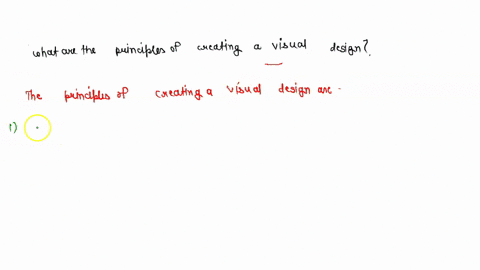 what are the principles of creating a visual design?
The principles of creating a visual design are -
1)